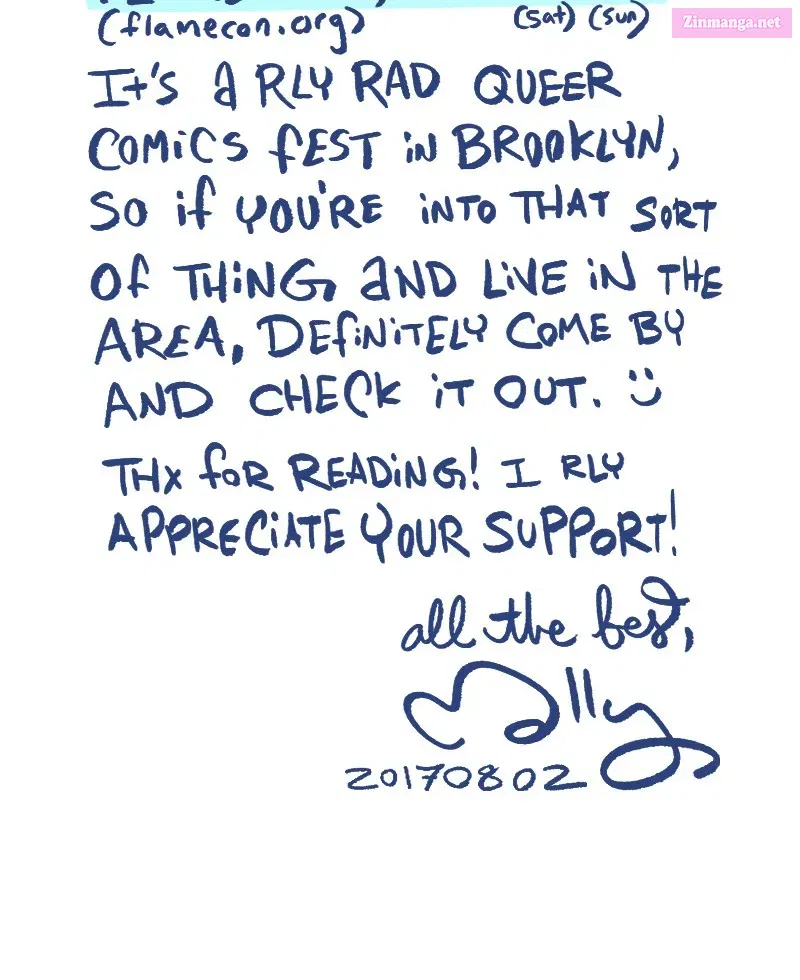 (flamecon.org) (sat) (sun)
Zinmanga.net
IT'S A RLY RAD QUEER
COMICS FEST IN BROOKLYN,
SO IF YOU'RE INTO THAT SORT
OF THING, AND LIVE IN THE
AREA, DEFINITELY COME BY
AND CHECK IT OUT. :)
THX FOR READING! I RLY
APPRECIATE YOUR SUPPORT!
all the best,
Molly
20170802